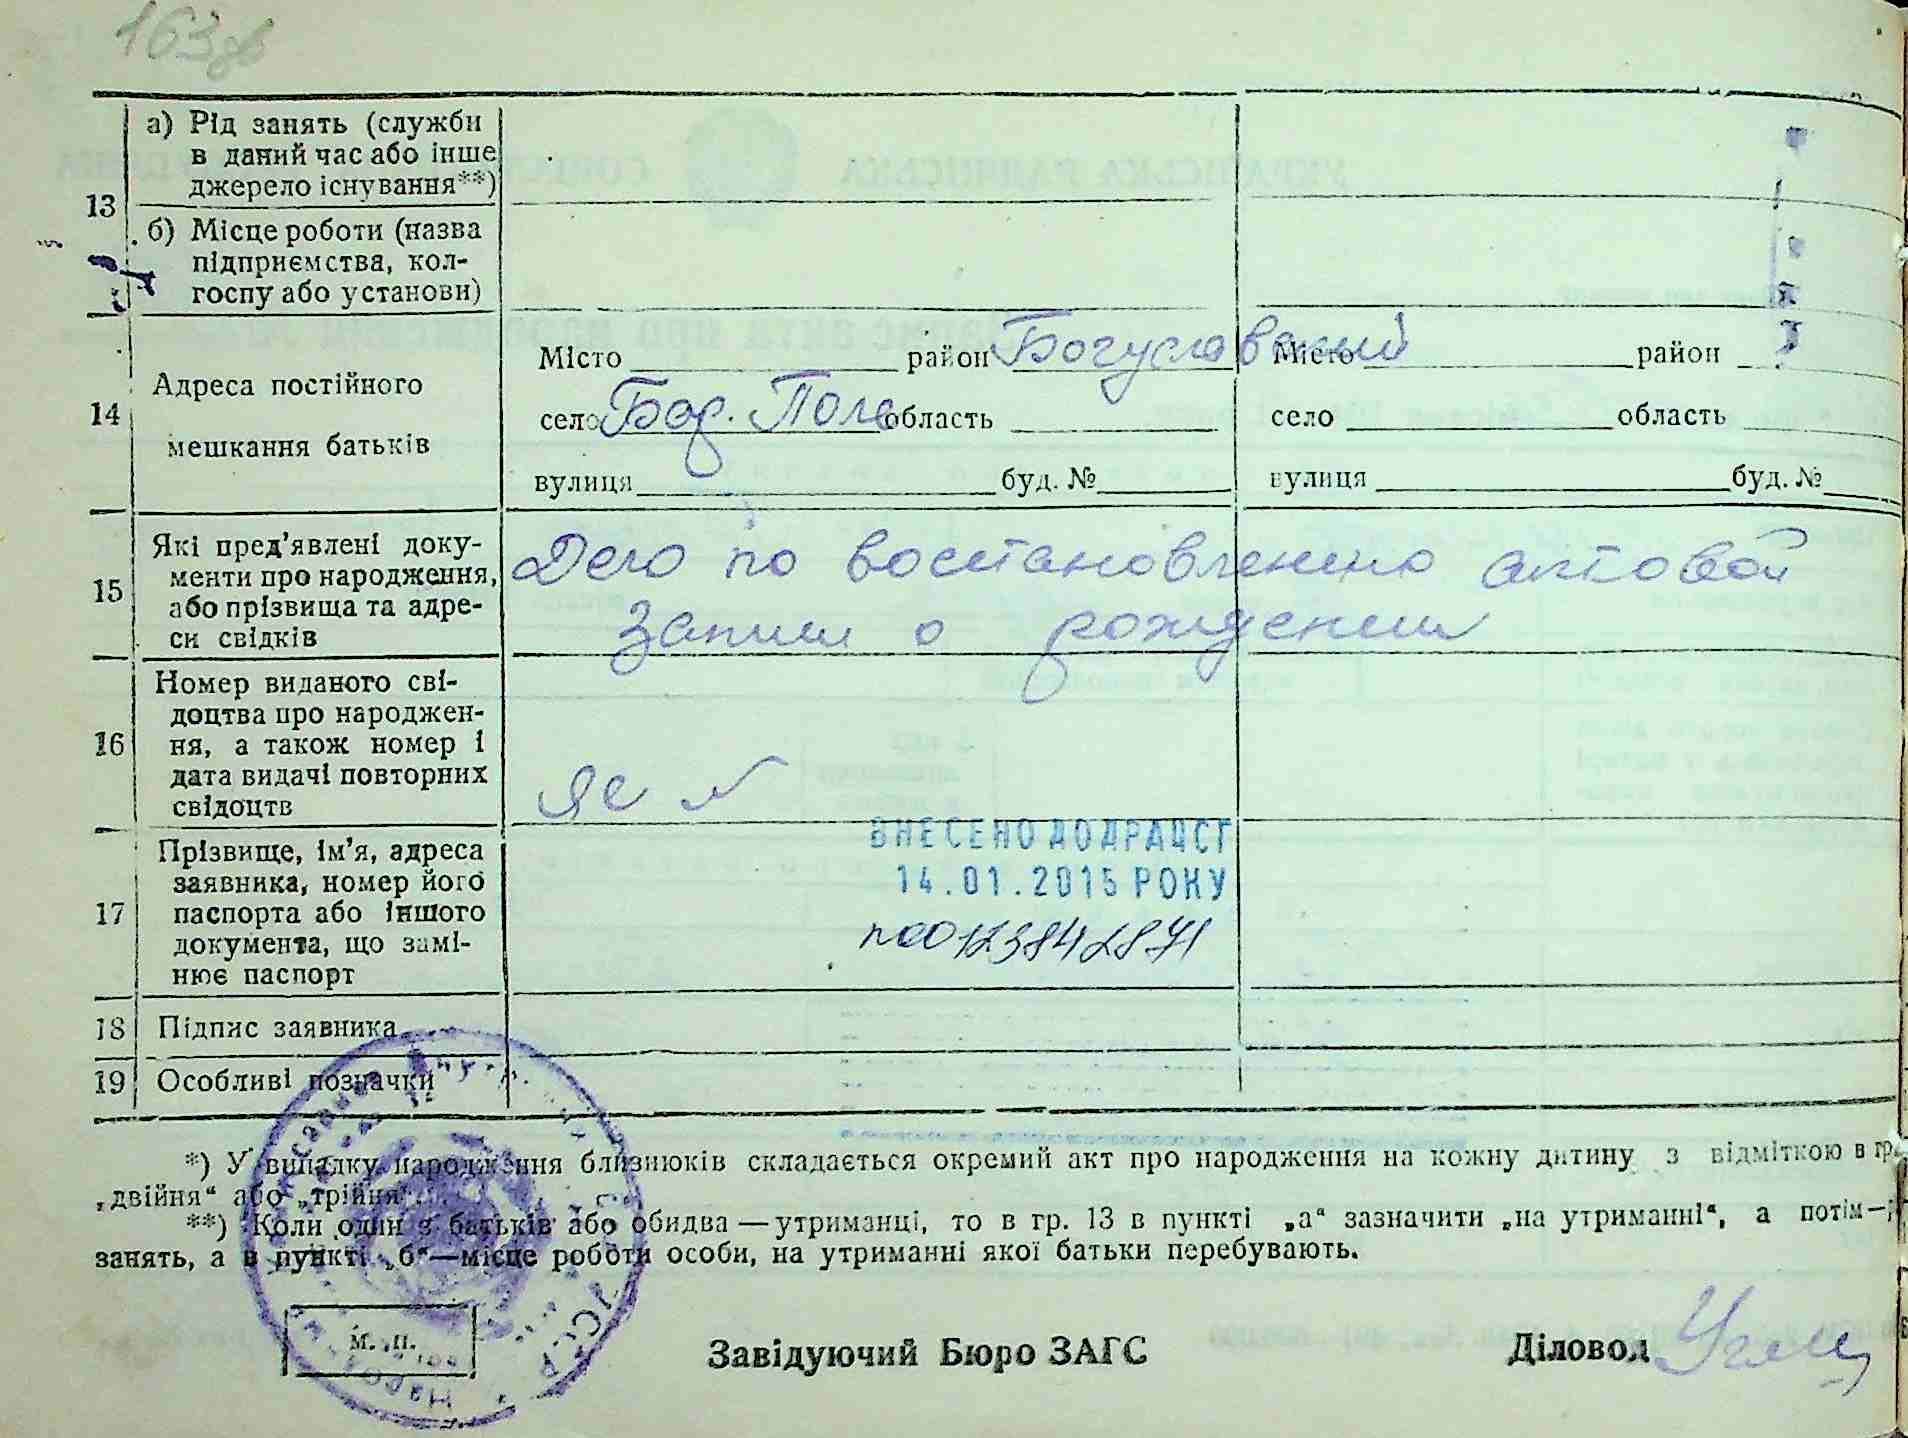 163зв
13
а) Рід занять (служби
в даний час або інше
джерело існування**)
б) Місце роботи (назва
підприємства, кол-
госпу або установи)
14
Адреса постійного
мешкання батьків
Місто район Богуславский Місто район
село Бод. Поле область село область
вулиця буд. № вулиця буд. №
15
Які пред’явлені доку-
менти про народження,
або прізвища та адре-
си свідків
Дело по восстановлению актовой
записи о рождении
16
Номер виданого сві-
доцтва про народжен-
ня, а також номер і
дата видачі повторних
свідоцтв
ЯС №
17
Прізвище, ім’я, адреса
заявника, номер його
паспорта або іншого
документа, що замі-
нює паспорт
ВНЕСЕНО ДО ДРАЦСГ
14.01.2015 РОКУ
18 Підпис заявника
19 Особливі позначки
*) У випадку народження близнюків складається окремий акт про народження на кожну дитину з відміткою в гр.
„двійня“ або „трійня“.
**) Коли один з батьків або обидва — утриманці, то в гр. 13 в пункті „а“ зазначити „на утриманні“, а потім —
занять, а в пункті „б“ — місце роботи особи, на утриманні якої батьки перебувають.
М. П.
Завідуючий Бюро ЗАГС Діловод